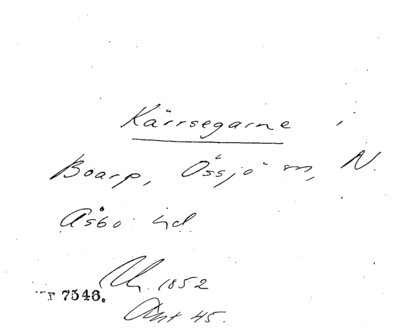 Kärrsegarne i
Boarp, Össjö sn, N.
Åsbo hd.
1852
7546.
Ant 45.